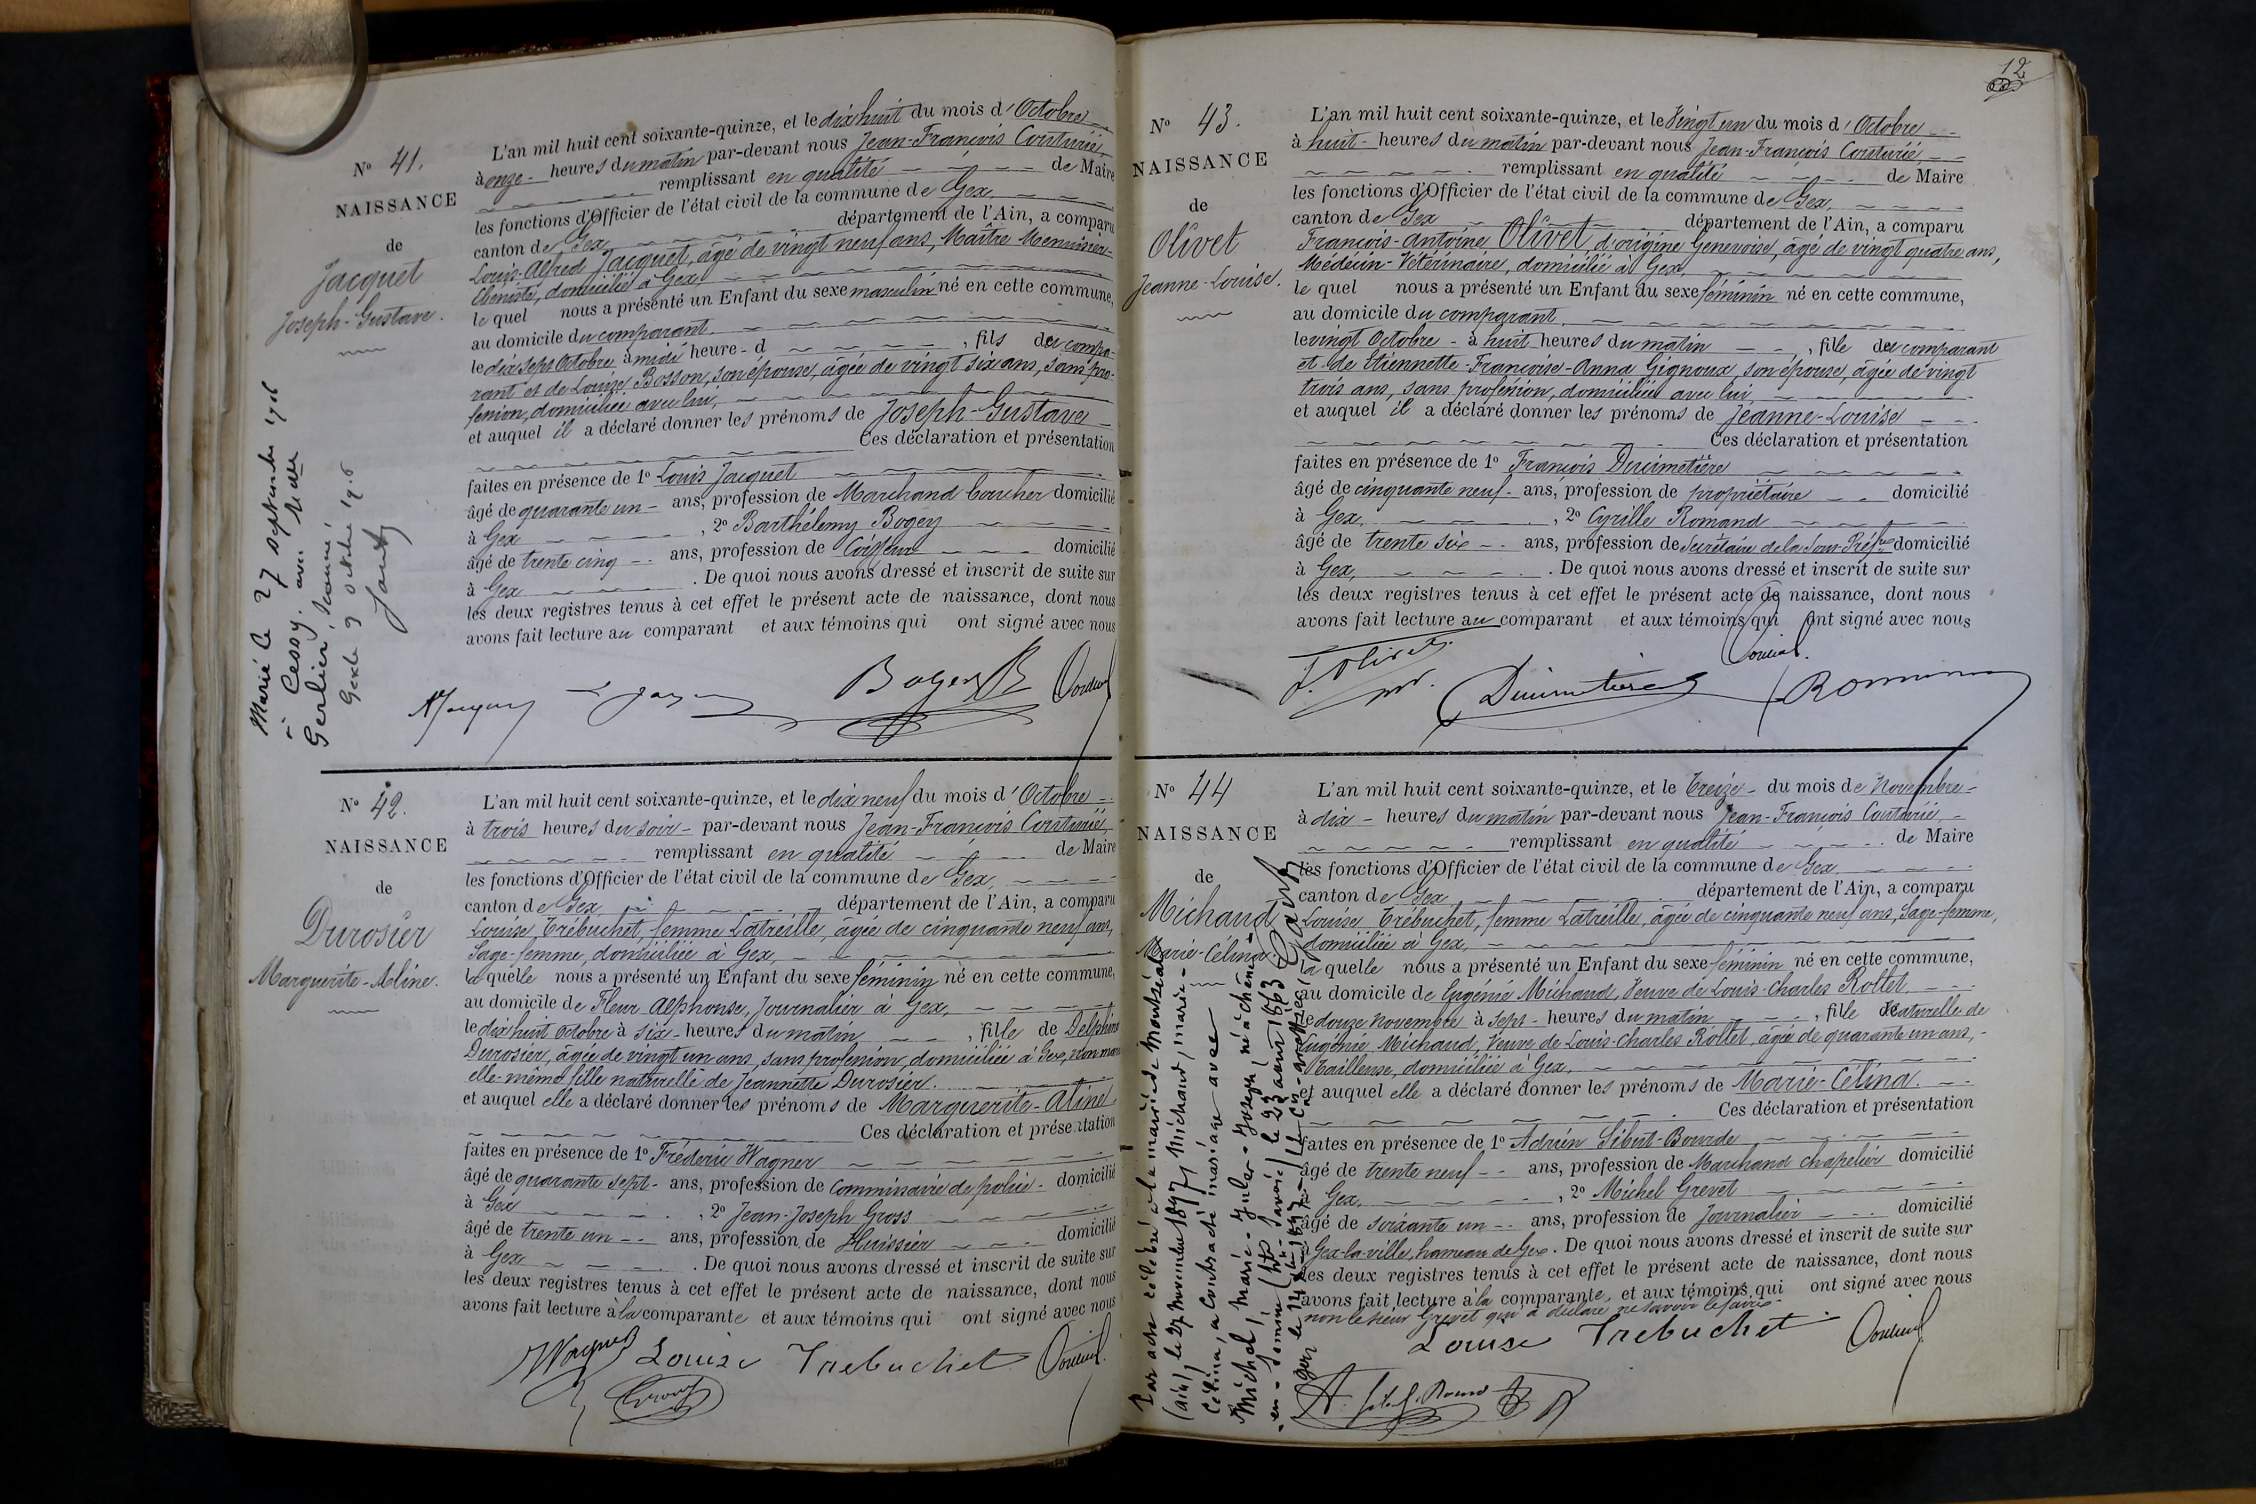 12
N° 41.
NAISSANCE
de
Jacquet
Joseph-Gustave.
L'an mil huit cent soixante-quinze, et le dix huit du mois d'Octobre
à onze heures du matin par-devant nous Jean-François Couturié,
remplissant en qualité de Maire
les fonctions d'Officier de l'état civil de la commune de Gex,
canton de Gex département de l'Ain, a comparu
Louis-Alfred Jacquet, âgé de vingt neuf ans, Maître Menuisier-
Ebéniste, domicilié à Gex,
le quel nous a présenté un Enfant du sexe masculin né en cette commune,
au domicile du comparant.
le dix sept Octobre à midi heure d , fils du compa-
rant et de Louise Bosson, son épouse, âgée de vingt six ans, sans pro-
fession, domiciliée avec lui,
et auquel il a déclaré donner les prénoms de Joseph-Gustave
Ces déclaration et présentation
faites en présence de 1° Louis Jacquet
âgé de quarante un ans, profession de Marchand boucher domicilié
à Gex , 2° Barthélemy Bogey
âgé de trente cinq ans, profession de Coiffeur domicilié
à Gex . De quoi nous avons dressé et inscrit de suite sur
les deux registres tenus à cet effet le présent acte de naissance, dont nous
avons fait lecture au comparant et aux témoins qui ont signé avec nous
Marié le 27 septembre 1906
à Cessy. avec Melle
Gerlier, Jeanne
Gex le 9 octobre 1906
Bogey B
N° 42.
NAISSANCE
de
Durosier
Marguerite-Aline.
L'an mil huit cent soixante-quinze, et le dix neuf du mois d'Octobre
à trois heures du soir par-devant nous Jean-François Couturié,
remplissant en qualité de Maire
les fonctions d'Officier de l'état civil de la commune de Gex,
canton de Gex département de l'Ain, a comparu
Louise Trébuchet, femme Latreille, âgée de cinquante neuf ans,
Sage-femme, domiciliée à Gex,
la quelle nous a présenté un Enfant du sexe féminin né en cette commune,
au domicile de Fleur Alphonse, Journalier à Gex,
le dix huit octobre à six heures du matin , fille de Delphine
Durosier, âgée de vingt un ans, sans profession, domiciliée à Gex,
elle-même fille naturelle de Jeannette Durosier.
et auquel elle a déclaré donner les prénoms de Marguerite-Aline
Ces déclaration et présentation
faites en présence de 1° Frédéric Wagner
âgé de quarante sept ans, profession de Commissaire de police domicilié
à Gex , 2° Jean-Joseph Gross
âgé de trente un ans, profession de Huissier domicilié
à Gex . De quoi nous avons dressé et inscrit de suite sur
les deux registres tenus à cet effet le présent acte de naissance, dont nous
avons fait lecture à la comparante et aux témoins qui ont signé avec nous
Wagner Louise Trebuchet
N° 43.
NAISSANCE
de
Olivet
Jeanne-Louise.
L'an mil huit cent soixante-quinze, et le Vingt un du mois d'Octobre
à huit heures du matin par-devant nous Jean-François Couturié,
remplissant en qualité de Maire
les fonctions d'Officier de l'état civil de la commune de Gex,
canton de Gex département de l'Ain, a comparu
François-Antoine Olivet d'origine Genevoise, âgé de vingt quatre ans,
Médecin-Vétérinaire, domicilié à Gex,
le quel nous a présenté un Enfant du sexe féminin né en cette commune,
au domicile du comparant.
le vingt Octobre à huit heures du matin , fille du comparant
et de Etiennette-Françoise-Anna Gignoux, son épouse, âgée de vingt
trois ans, sans profession, domiciliée avec lui,
et auquel il a déclaré donner les prénoms de Jeanne-Louise
Ces déclaration et présentation
faites en présence de 1° François Ducimetière
âgé de cinquante neuf ans, profession de propriétaire domicilié
à Gex, , 2° Cyrille Romand
âgé de trente six ans, profession de Secrétaire de la Sous-Préfre domicilié
à Gex, . De quoi nous avons dressé et inscrit de suite sur
les deux registres tenus à cet effet le présent acte de naissance, dont nous
avons fait lecture au comparant et aux témoins qui ont signé avec nous
Ducimetière
N° 44
NAISSANCE
de
Michaud
Marie-Célina.
L'an mil huit cent soixante-quinze, et le Treize du mois de Novembre
à dix heures du matin par-devant nous Jean-François Couturié,
remplissant en qualité de Maire
les fonctions d'Officier de l'état civil de la commune de Gex
canton de Gex département de l'Ain, a comparu
Louise Trébuchet, femme Latreille, âgée de cinquante neuf ans, Sage-femme,
domiciliée à Gex,
la quelle nous a présenté un Enfant du sexe féminin né en cette commune,
au domicile de Eugénie Michaud, Veuve de Louis-Charles Rollet,
le douze Novembre à sept heures du matin , fille naturelle de
Eugénie Michaud, Veuve de Louis-Charles Rollet, âgée de quarante un ans,
Tailleuse, domiciliée à Gex,
et auquel elle a déclaré donner les prénoms de Marie-Célina.
Ces déclaration et présentation
faites en présence de 1° Adrien Sibut-Bourde
âgé de trente neuf ans, profession de Marchand chapelier domicilié
à Gex, , 2° Michel Grevet
âgé de soixante un ans, profession de Journalier domicilié
à Gex-la-ville, hameau de Gex. De quoi nous avons dressé et inscrit de suite sur
les deux registres tenus à cet effet le présent acte de naissance, dont nous
avons fait lecture à la comparante et aux témoins qui ont signé avec nous
non le sieur Grevet qui a déclaré ne savoir le faire.
Louise Trebuchet
Par acte célébré à la mairie de
(ain) le 27 novembre 1897, Michaud, marie-
Célina, a contracté mariage avec
Michel, marie-Jules-Joseph, né à Chêne-
en-Semine (hte Savoie) le 23 août 1863